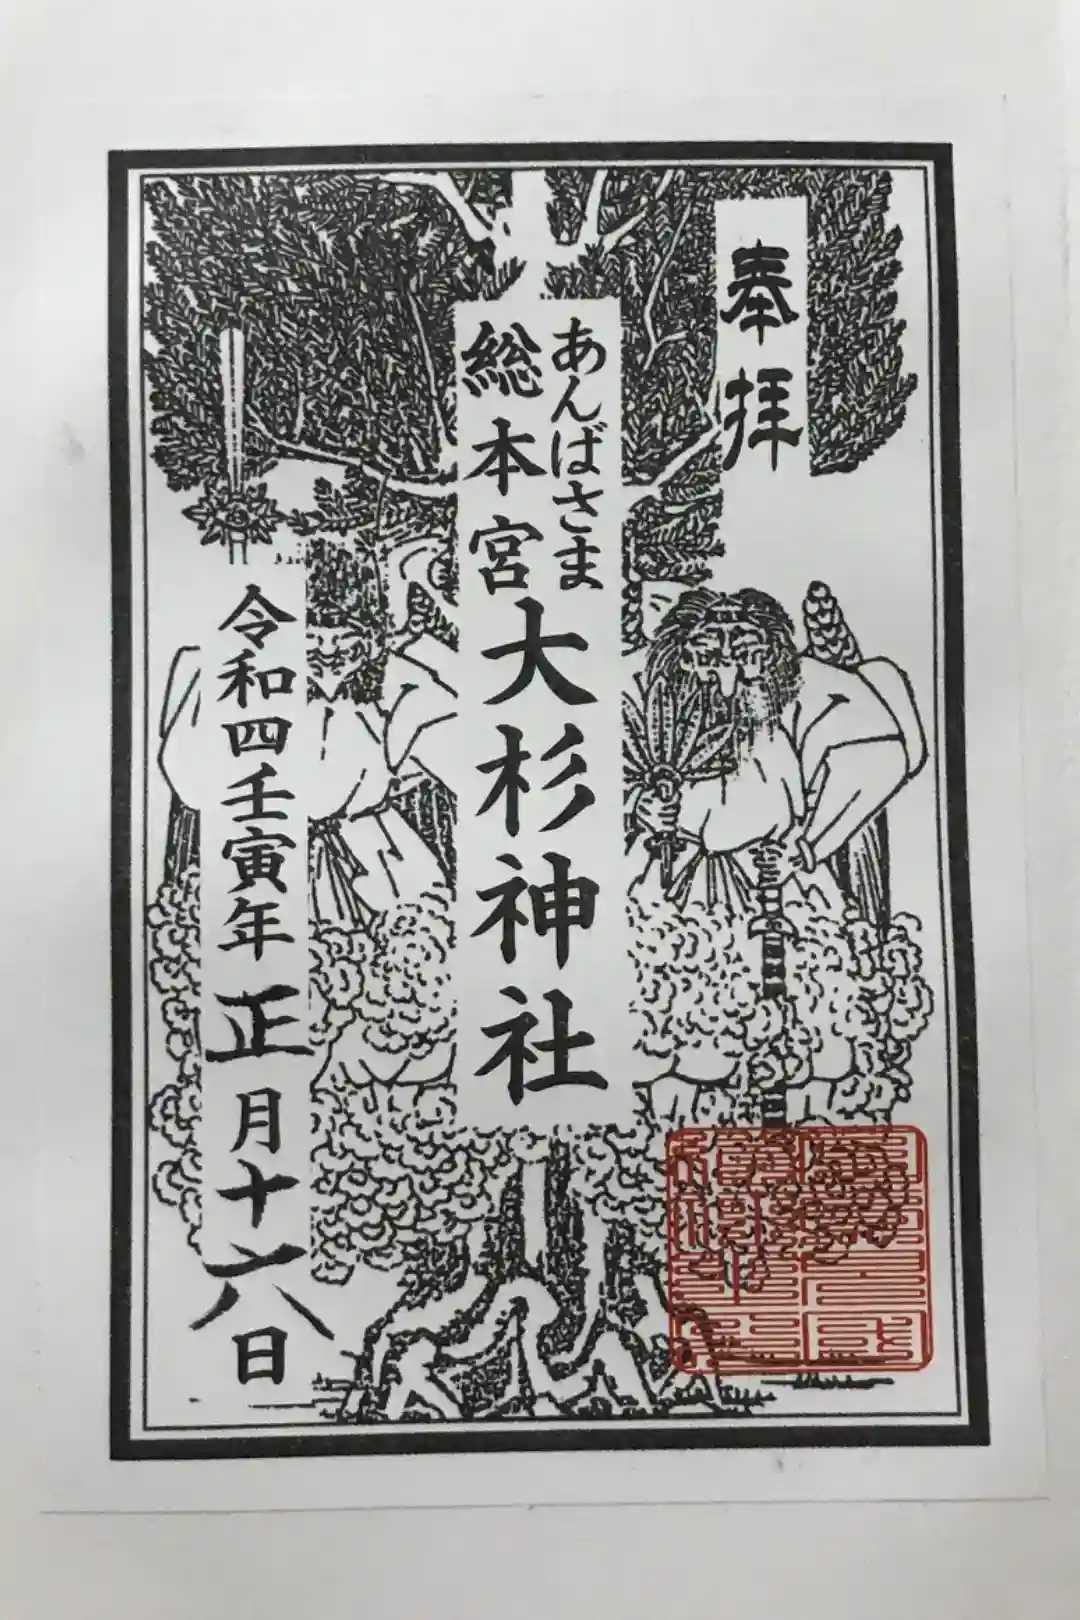 奉拝
あんばさま
総本宮大杉神社
令和四壬寅年正月十六日